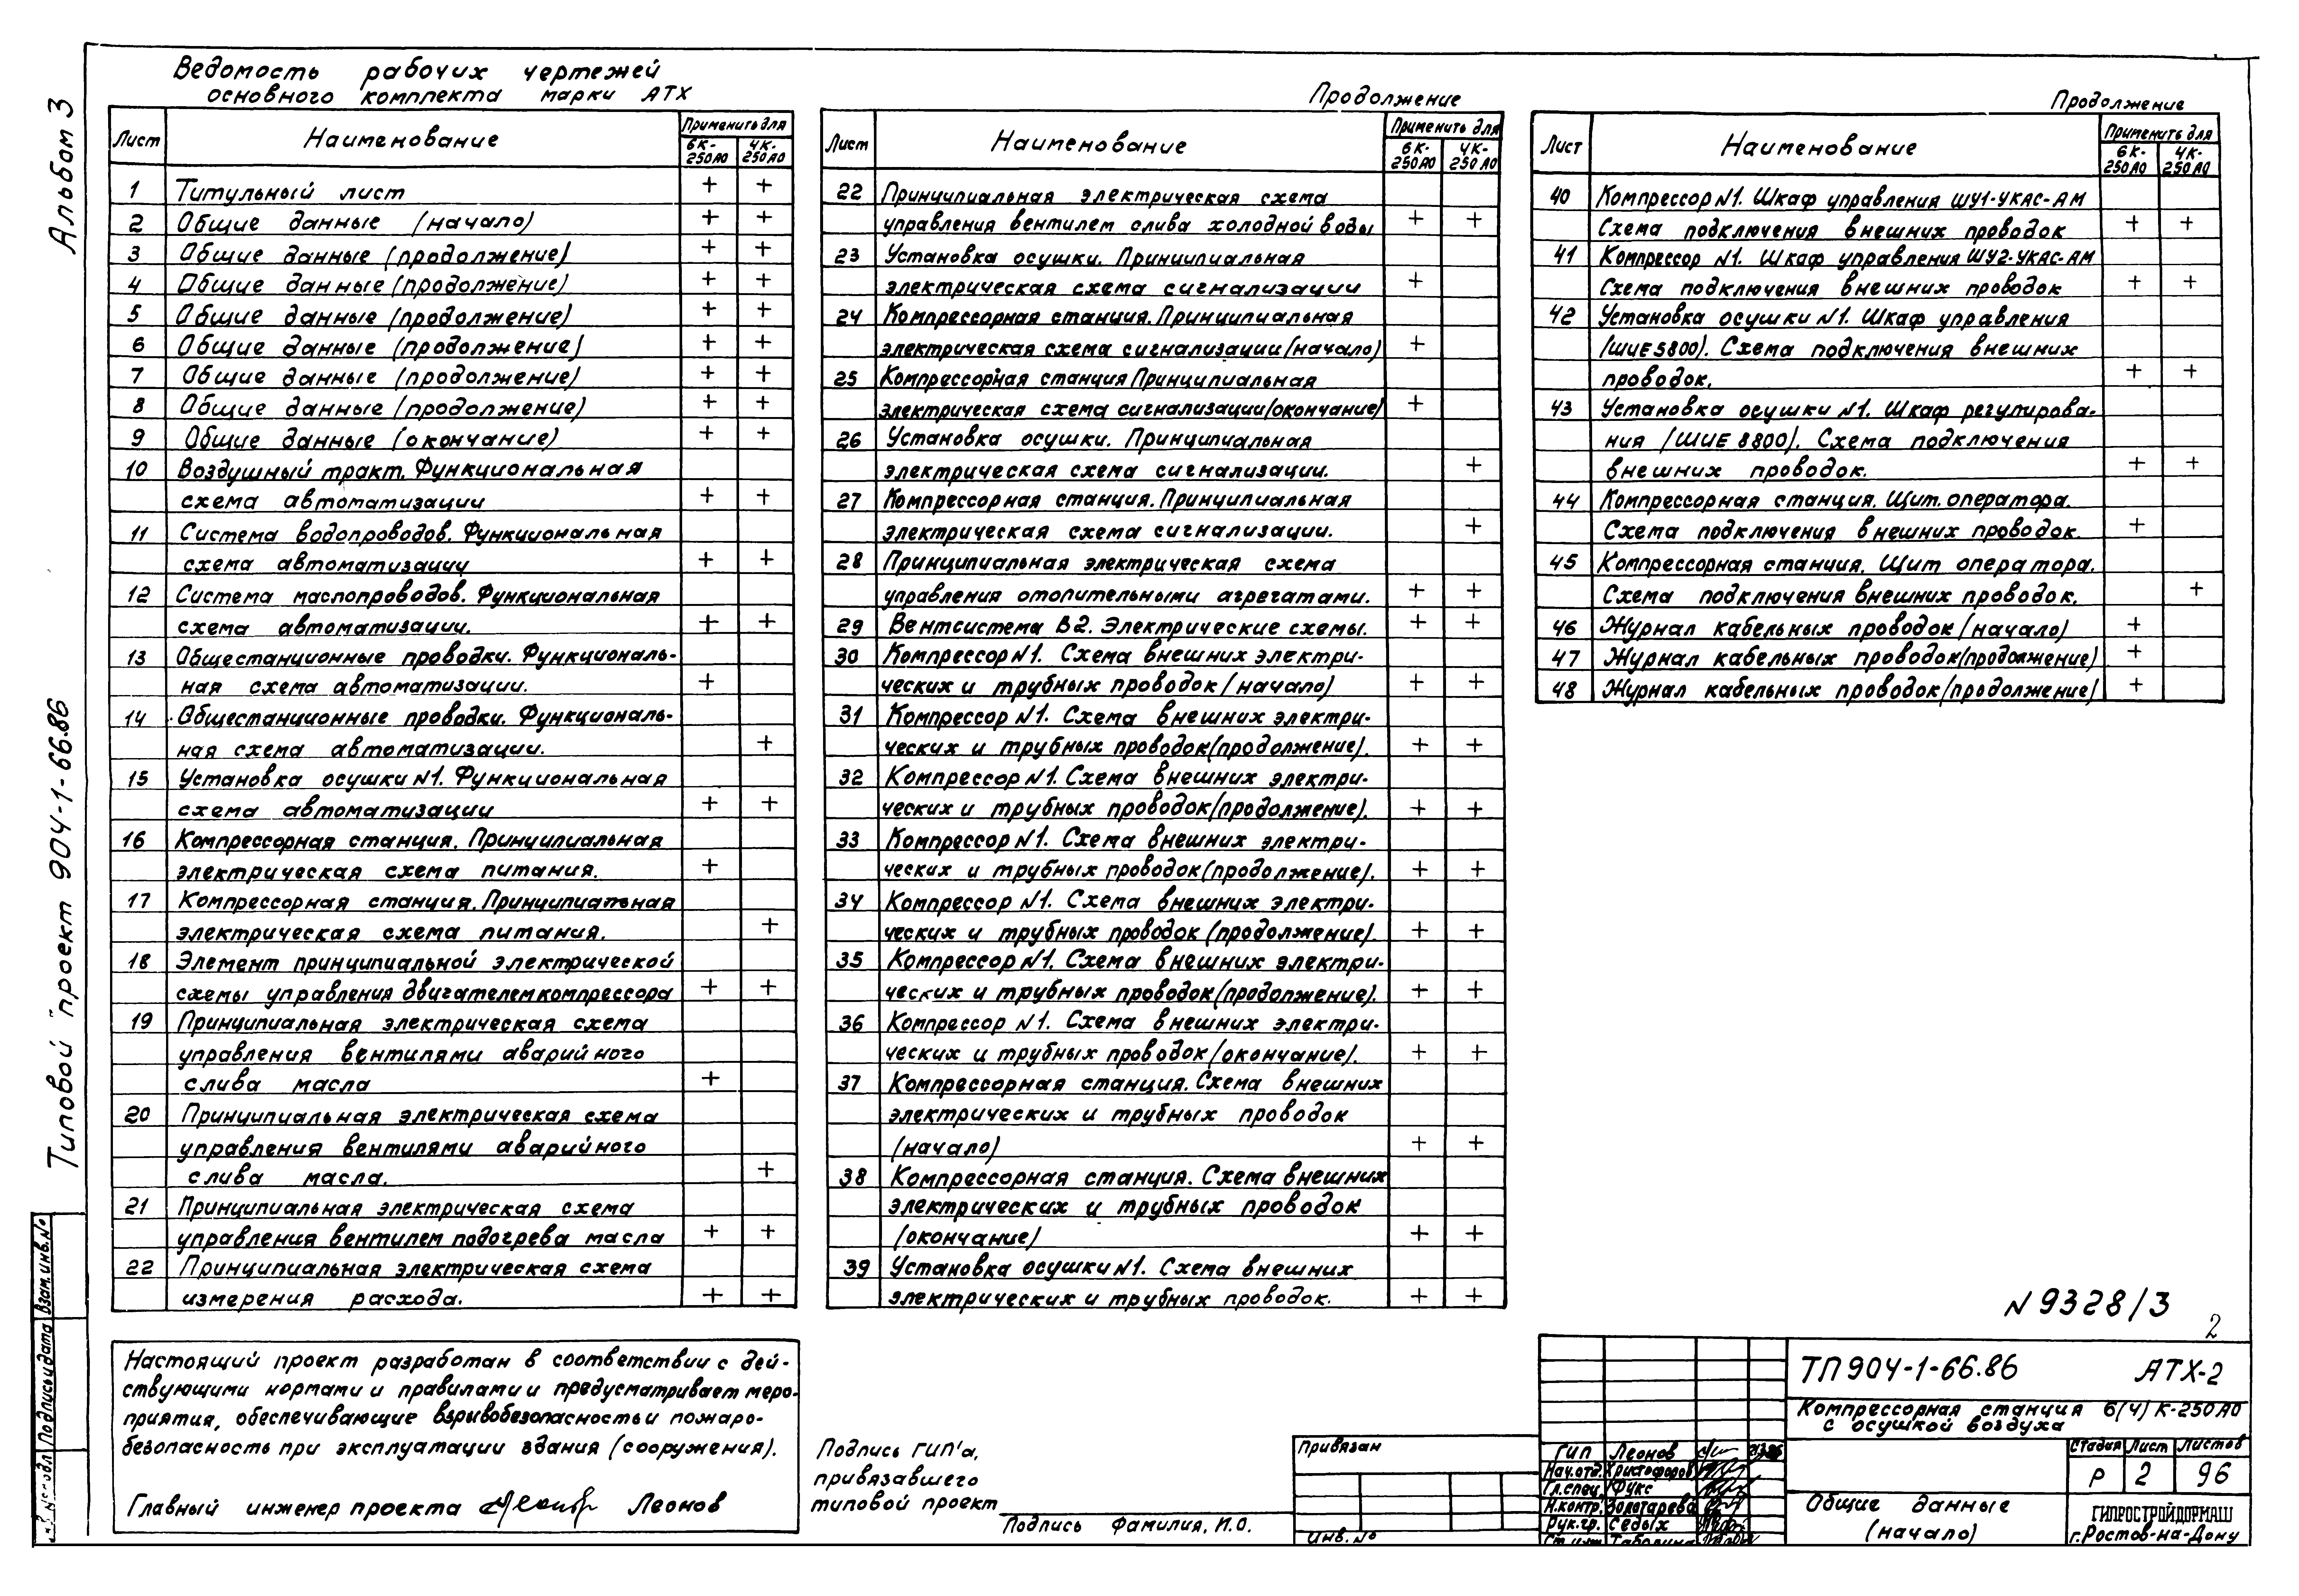 Альбом 3
Типовой проект 904-1-66.86
Ведомость рабочих чертежей
основного комплекта марки АТХ
Лист Наименование Применить для
6К-250А0 4К-250А0
1 Титульный лист + +
2 Общие данные (начало) + +
3 Общие данные (продолжение) + +
4 Общие данные (продолжение) + +
5 Общие данные (продолжение) + +
6 Общие данные (продолжение) + +
7 Общие данные (продолжение) + +
8 Общие данные (продолжение) + +
9 Общие данные (окончание) + +
10 Воздушный тракт. Функциональная
схема автоматизации + +
11 Система водопроводов. Функциональная
схема автоматизации + +
12 Система маслопроводов. Функциональная
схема автоматизации. + +
13 Общестанционные проводки. Функциональ-
ная схема автоматизации. +
14 Общестанционные проводки. Функциональ-
ная схема автоматизации. +
15 Установка осушки N1. Функциональная
схема автоматизации + +
16 Компрессорная станция. Принципиальная
электрическая схема питания. +
17 Компрессорная станция. Принципиальная
электрическая схема питания. +
18 Элемент принципиальной электрической
схемы управления двигателем компрессора + +
19 Принципиальная электрическая схема
управления вентилями аварийного
слива масла +
20 Принципиальная электрическая схема
управления вентилями аварийного
слива масла. +
21 Принципиальная электрическая схема
управления вентилем подогрева масла + +
22 Принципиальная электрическая схема
измерения расхода. + +
Продолжение
Лист Наименование Применить для
6К-250А0 4К-250А0
22 Принципиальная электрическая схема
управления вентилем слива холодной воды + +
23 Установка осушки. Принципиальная
электрическая схема сигнализации +
24 Компрессорная станция. Принципиальная
электрическая схема сигнализации (начало) +
25 Компрессорная станция Принципиальная
электрическая схема сигнализации (окончание) +
26 Установка осушки. Принципиальная
электрическая схема сигнализации. +
27 Компрессорная станция. Принципиальная
электрическая схема сигнализации. +
28 Принципиальная электрическая схема
управления отопительными агрегатами. + +
29 Вентсистема В2. Электрические схемы. + +
30 Компрессор N1. Схема внешних электри-
ческих и трубных проводок (начало) + +
31 Компрессор N1. Схема внешних электри-
ческих и трубных проводок (продолжение). + +
32 Компрессор N1. Схема внешних электри-
ческих и трубных проводок (продолжение). + +
33 Компрессор N1. Схема внешних электри-
ческих и трубных проводок (продолжение). + +
34 Компрессор N1. Схема внешних электри-
ческих и трубных проводок (продолжение). + +
35 Компрессор N1. Схема внешних электри-
ческих и трубных проводок (продолжение). + +
36 Компрессор N1. Схема внешних электри-
ческих и трубных проводок (окончание). + +
37 Компрессорная станция. Схема внешних
электрических и трубных проводок
(начало) + +
38 Компрессорная станция. Схема внешних
электрических и трубных проводок
(окончание) + +
39 Установка осушки N1. Схема внешних
электрических и трубных проводок. + +
Продолжение
Лист Наименование Применить для
6К-250А0 4К-250А0
40 Компрессор N1. Шкаф управления ШУ1-УКАС-АМ
Схема подключения внешних проводок + +
41 Компрессор N1. Шкаф управления ШУ2-УКАС-АМ
Схема подключения внешних проводок + +
42 Установка осушки N1. Шкаф управления
(ШИЕ5800). Схема подключения внешних
проводок. + +
43 Установка осушки N1. Шкаф регулирова-
ния (ШИЕ 8800). Схема подключения
внешних проводок. + +
44 Компрессорная станция. Щит. оператора.
Схема подключения внешних проводок. +
45 Компрессорная станция. Щит оператора.
Схема подключения внешних проводок. +
46 Журнал кабельных проводок (начало) +
47 Журнал кабельных проводок (продолжение) +
48 Журнал кабельных проводок (продолжение) +
N 9328/3
2
Настоящий проект разработан в соответствии с дей-
ствующими нормами и правилами и предусматривает меро-
приятия, обеспечивающие взрывобезопасность и пожаро-
безопасность при эксплуатации здания (сооружения).
Главный инженер проекта Леонов
Подпись ГИП'а,
привязавшего
типовой проект
Подпись Фамилия, И.О.
Привязан
Инв. №
ГИП Леонов
Нач.отд. Христофоров
Гл.спец. Фукс
Н.контр. Золотарева
Рук.гр. Седых
ТП 904-1-66.86 АТХ-2
Компрессорная станция 6(4) К-250А0
с осушкой воздуха
Стадия Лист Листов
Р 2 96
Общие данные
(начало)
ГИПРОСТРОЙДОРМАШ
г.Ростов-на-Дону
Взам.инв.№
Подпись и дата